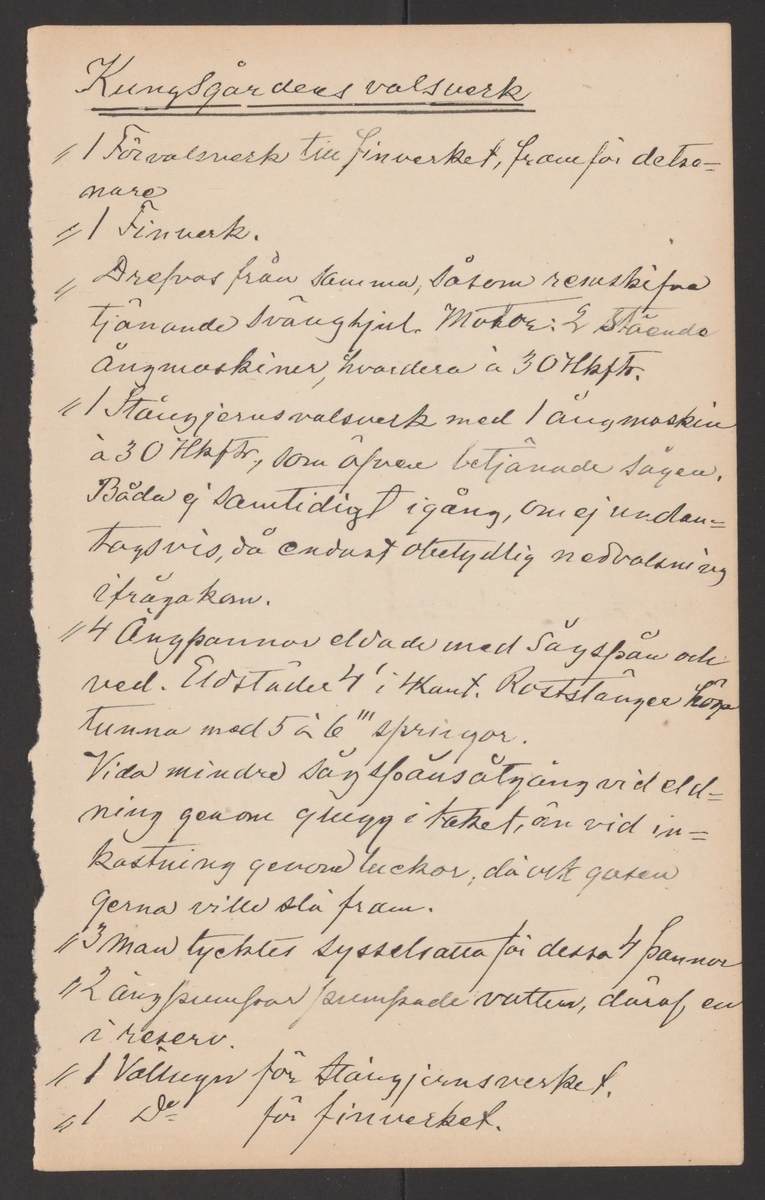 Kungsgårdens valsverk
" 1 Förvalsverk till finverket, framför detsa=
mare
" 1 Finverk.
" Drefvos från samma, såsom remskifva
tjänande svänghjul. Motor: 2 stående
ångmaskiner, hvardera à 30 Hkftr.
" 1 Stångjernsvalsverk med 1 ångmaskin
à 30 Hkftr, som äfven betjänade sågen.
Båda ej samtidigt igång, om ej undan=
tagsvis, då endast obetydlig nedvalsning
ifrågakom.
" 4 Ångpannor eldade med Sågspån och
ved. Eldstäder 4' i 4kant. Roststänger höga
tunna med 5 à 6''' springor.
Vida mindre sågspånsåtgång vid eld=
ning genom glugg i taket, än vid in=
kastning genom luckor, då ock gasen
gerna ville slå fram.
" 3 man tycktes sysselsatta för dessa 4 pannor
" 2 ångpumpar pumpade vatten, däraf en
i reserv.
" 1 Vällugn för stångjernsverket.
" 1 Do för finverket.